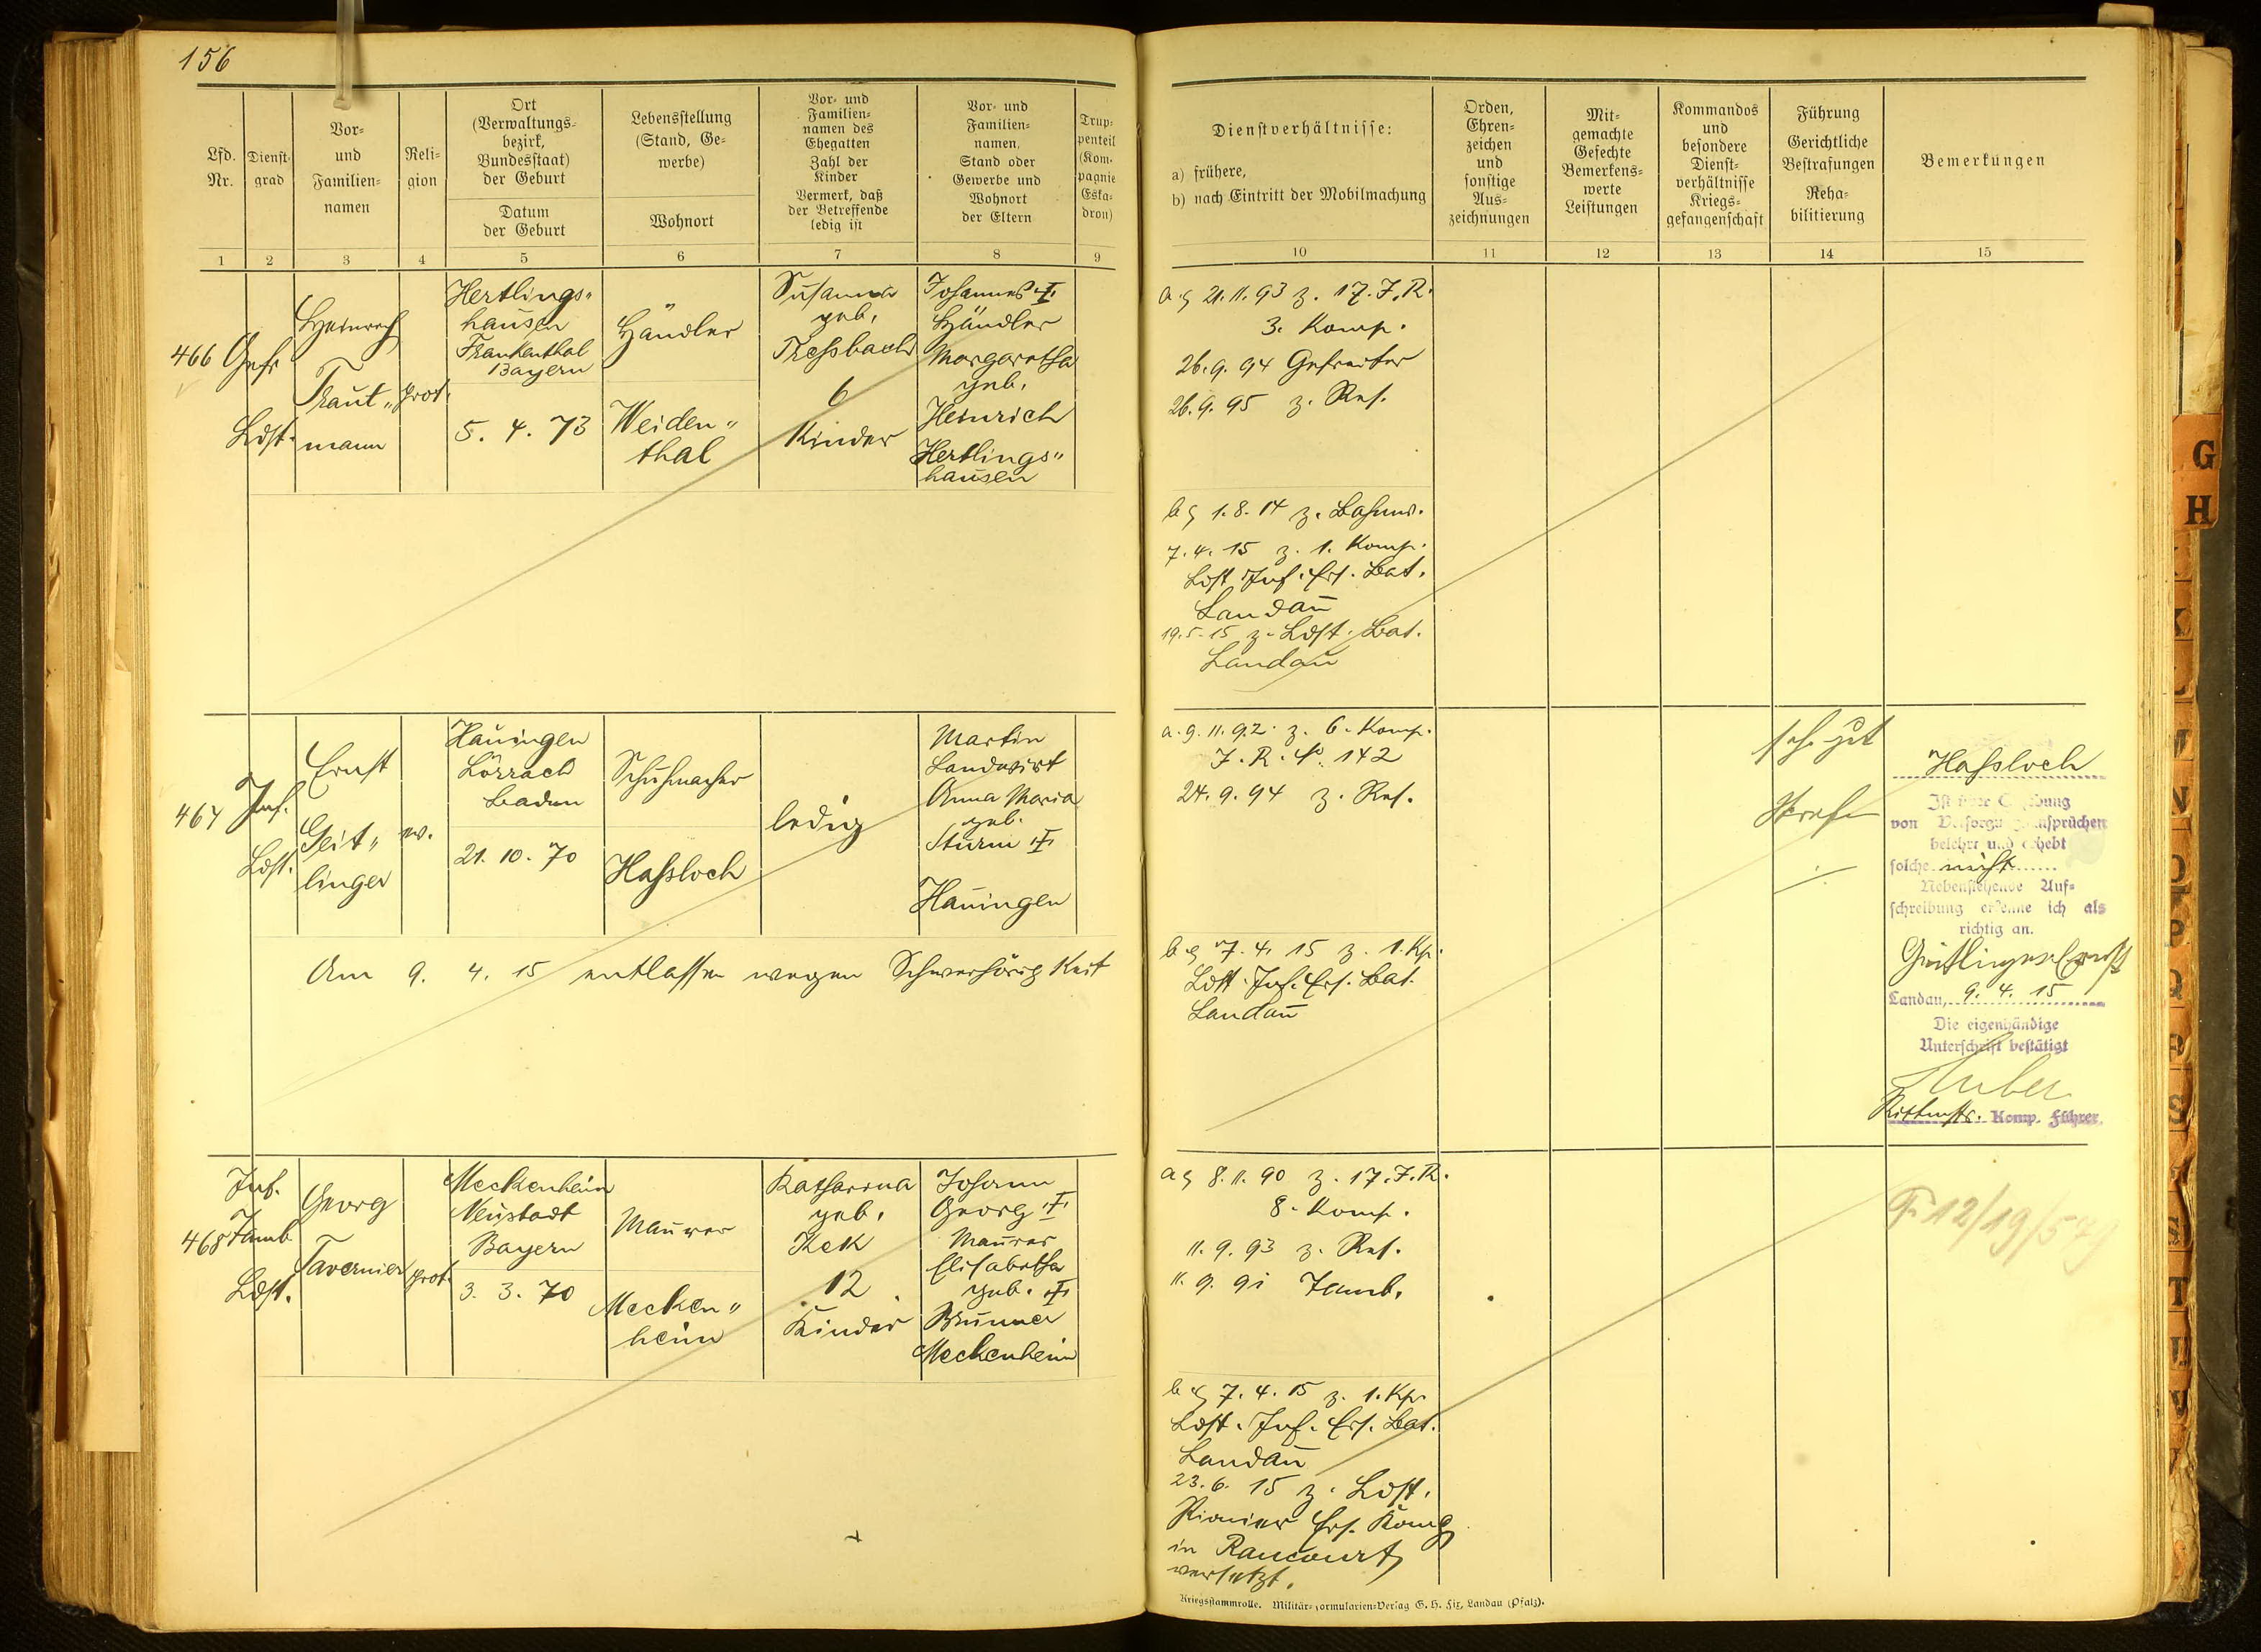 156
Lfd. Nr.
Dienst-
grad
Vor-
und
Familien-
namen
Reli-
gion
Ort
(Verwaltungs-
bezirk,
Bundesstaat)
der Geburt
Datum
der Geburt
Lebensstellung
(Stand, Ge-
werbe)
Wohnort
Vor- und
Familien-
namen des
Ehegatten
Zahl der
Kinder
Vermerk, daß
der Betreffende
ledig ist
Vor- und
Familien-
namen,
Stand oder
Gewerbe und
Wohnort
der Eltern
Trup-
penteil
(Kom-
pagnie
Eska-
dron)
Dienstverhältnisse:
a) frühere,
b) nach Eintritt der Mobilmachung
Orden,
Ehren-
zeichen
und
sonstige
Aus-
zeichnungen
Mit-
gemachte
Gefechte
Bemerkens-
werte
Leistungen
Kommandos
und
besondere
Dienst-
verhältnisse
Kriegs-
gefangenschaft
Führung
Gerichtliche
Bestrafungen
Reha-
bilitierung
Bemerkungen
1 2 3 4 5 6 7 8 9 10 11 12 13 14 15
466
Gefr
Ldst.
Heinrich
Traut„
mann
prot.
Hertlings„
hausen
Frankenthal
Bayern
5. 4. 73
Händler
Weiden„
thal
Susanna
geb.
6
Kinder
Johannes
Händler
Margaretha
geb.
Heinrich
Hertlings„
hausen
a. 21. 11. 93 z. 17. I. R.
3. Komp.
26. 9. 94 Gefreiter
26. 9. 95 z. Res.
b. 1. 8. 14 z.
7. 4. 15 z. 1. Komp.
Ldst. Inf. Ers. Bat.
Landau
19. 5. 15 z. Ldst. Bat.
Landau
467
Inf.
Ldst.
Ernst
Geit„
linger
ev.
Hauingen
Lörrach
Baden
21. 10. 70
Schuhmacher
Hassloch
ledig
Martin
Landwirt
Anna Maria
geb.
Sturm
Hauingen
Am 9. 4. 15 entlassen wegen Schwerhörigkeit
a. 9. 11. 92. z. 6. Komp.
I. R. No. 142
24. 9. 94 z. Res.
b. 7. 4. 15 z. 1. Kp.
Ldst. Inf. Ers. Bat.
Landau
s. gut
Strafe
Hassloch
von Versorgungsansprüchen
belehrt und erhebt
solche nicht
Nebenstehende Auf-
schreibung erkenne ich als
richtig an.
Geitlinger Ernst
Landau, 9. 4. 15
Die eigenhändige
Unterschrift bestätigt
Huber
Rittmstr. Komp. Führer.
468
Inf.
Tamb
Ldst.
Georg
Tavernier
prot.
Meckenheim
Neustadt
Bayern
3. 3. 70
Maurer
Mecken„
heim
Katharina
geb.
Kek
12
Kinder
Johann
Georg
Maurer
Elisabetha
geb.
Brunner
Meckenheim
a. 8. 11. 90 z. 17. I. R.
8. Komp.
11. 9. 93 z. Res.
11. 9. 91 Tamb.
b. 7. 4. 15 z. 1. Kp.
Ldst. Inf. Ers. Bat.
Landau
23. 6. 15 z. Ldst.
Pionier Ers. Komp
in Rancourt
versetzt.
Kriegsstammrolle. Militär-Formularien-Verlag G. H. Fix, Landau (Pfalz).
G
H
K
N
O
P
Q
S
T
U
V